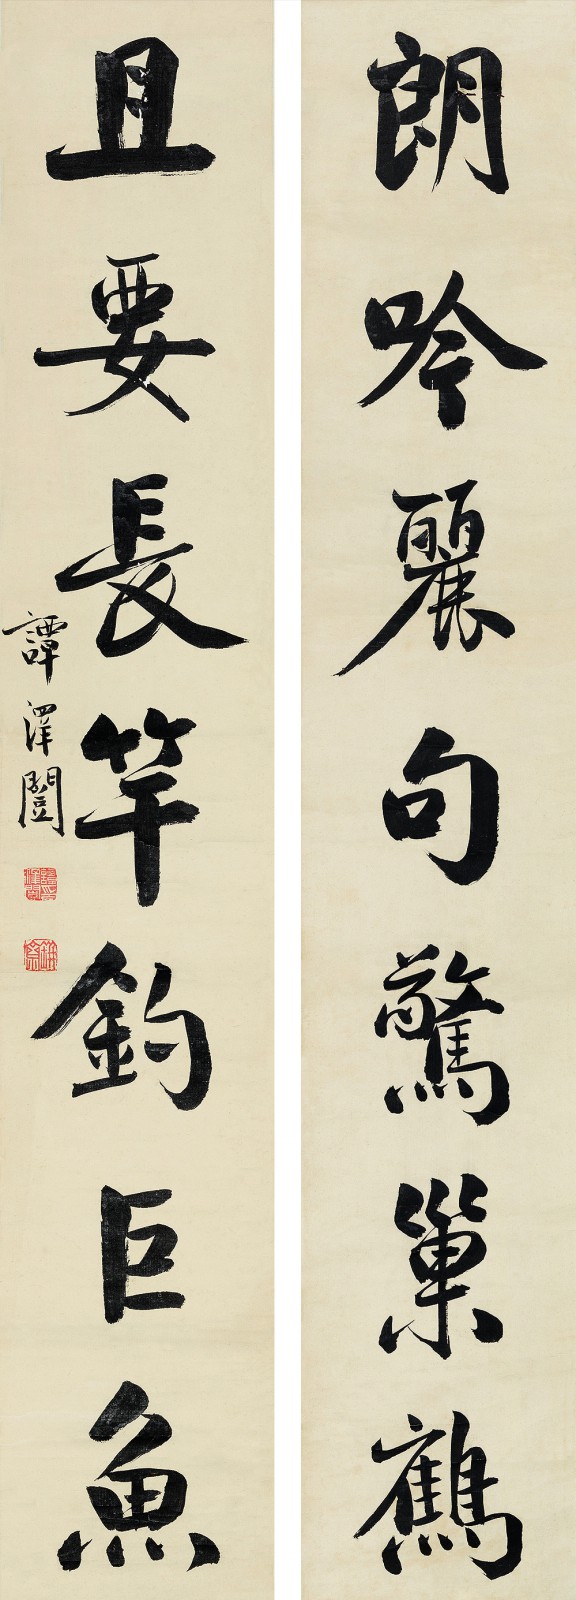 朗吟麗句驚巢鶴
且要長竿釣巨魚
譚澤闓